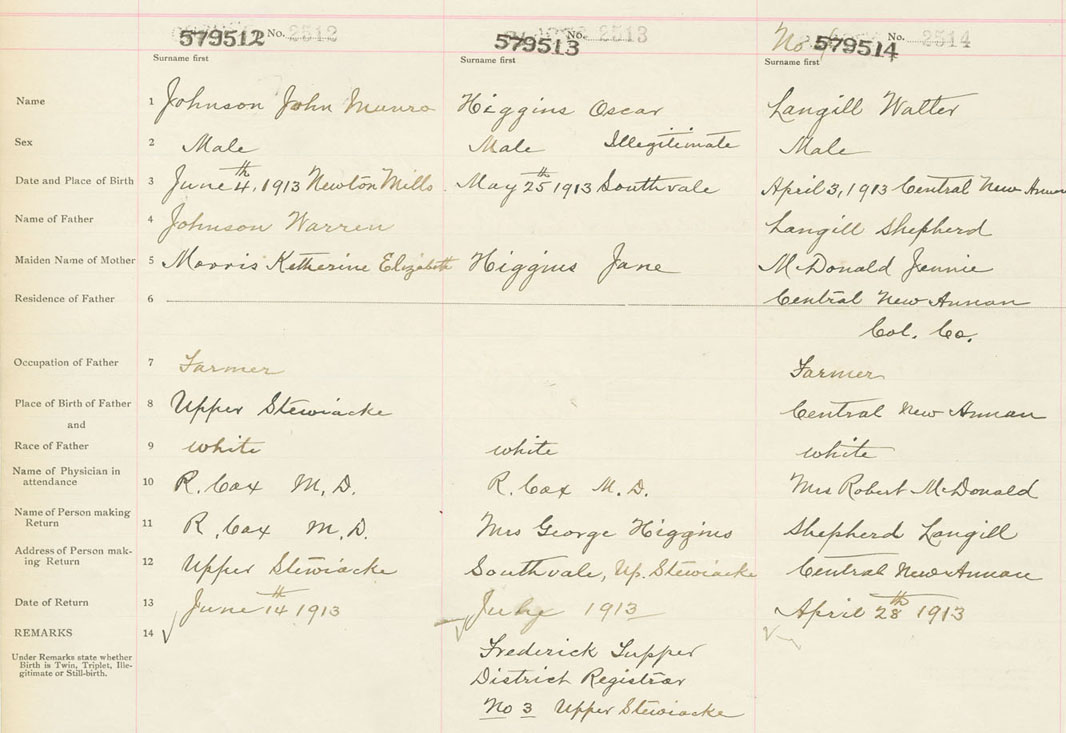 579512 No. 2512 579513 No. 2513 No. 579514 No. 2514
Surname first Surname first Surname first
Name 1 Johnson John Munro Higgins Oscar Langill Walter
Sex 2 Male Male Illegitimate Male
Date and Place of Birth 3 June 4th, 1913 Newton Mills May 25th 1913 Southvale April 3, 1913 Central New Annan
Name of Father 4 Johnson Warren Langill Shepherd
Maiden Name of Mother 5 Morris Ketherine Elizabeth Higgins Jane McDonald Jennie
Residence of Father 6 Central New Annan
Col. Co.
Occupation of Father 7 Farmer Farmer
Place of Birth of Father 8 Upper Stewiacke Central New Annan
and
Race of Father 9 white white white
Name of Physician in
attendance 10 R. Cox M. D. R. Cox M. D. Mrs Robert McDonald
Name of Person making
Return 11 R. Cox M. D. Mrs George Higgins Shepherd Langill
Address of Person mak-
ing Return 12 Upper Stewiacke Southvale, Up. Stewiacke Central New Annan
Date of Return 13 June 14th 1913 July 1913 April 28th 1913
REMARKS 14
Under Remarks state whether
Birth is Twin, Triplet, Ille-
gitimate or Still-birth.
Frederick Tupper
District Registrar
No 3 Upper Stewiacke